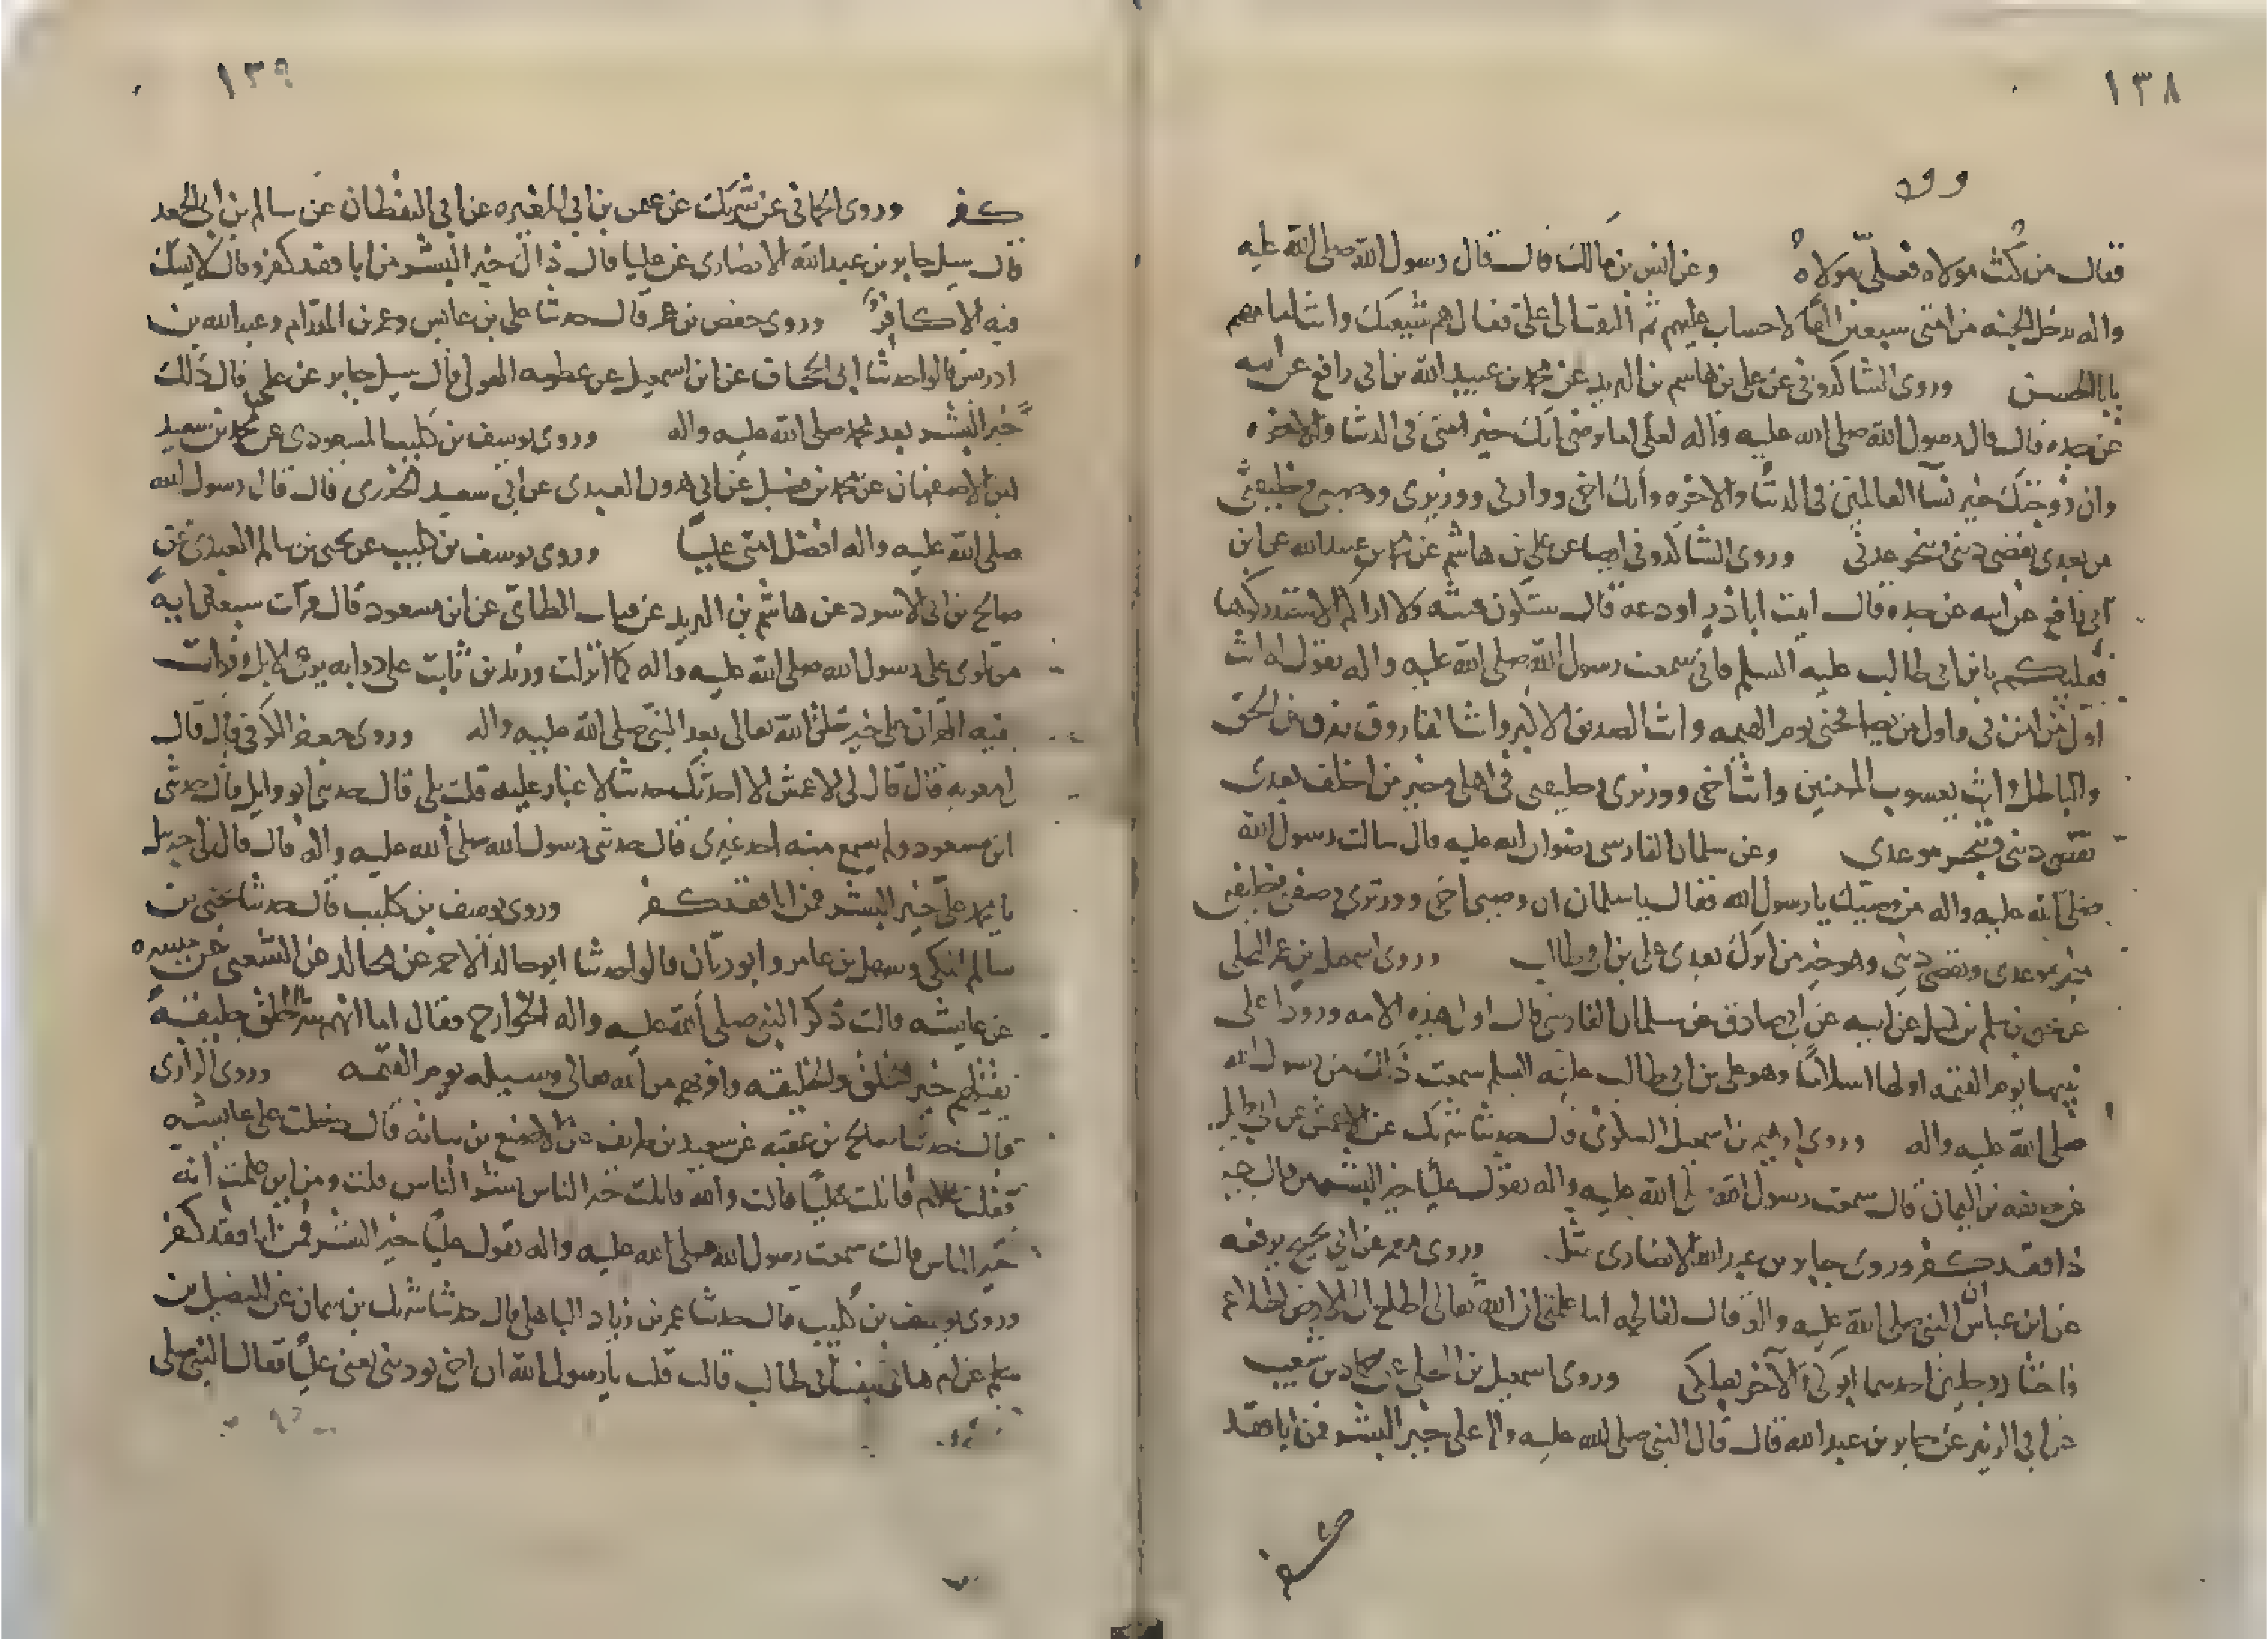 ١٣٨
فقال من كنت مولاه فعلي مولاه وعن انس بن مالك قال قال رسول الله صلى الله عليه
واله يدخل الجنه من امتي سبعين الفا لا حساب عليهم ثم التفت الى علي فقال هم شيعتك وانت امامهم
يابا الحسن وروى الشاذكوني عن علي بن هاشم بن البريد عن محمد بن عبيد الله بن ابي رافع عن ابيه
عن جده قال قال رسول الله صلى الله عليه واله لعلي اما ترضى انك خير امتي في الدنيا والاخره
وان زوجتك خير نسآ العالمين في الدنيا والاخره وانك اخي ووزيري ووصيي وخليفتي
من بعدي تقضي ديني وتنجز عدتي وروى الشاذكوني ايضا عن علي بن هاشم عن محمد بن عبيد الله عن ابن
ابي رافع عن ابيه عن جده قال اتيت اباذر اودعه قال ستكون فتنه ولا اراكم الا ستدركوها
فعليكم بابن ابي طالب عليه السلم فاني سمعت رسول الله صلى الله عليه واله يقول له انت
اول من امن بي واول من يصافحني يوم القيمه وانت الصديق الاكبر وانت الفاروق تفرق بين الحق
والباطل وانت يعسوب المومنين وانت اخي ووزيري وخليفتي في اهلي وخير من اخلف بعدي
تقضي ديني وتنجز موعدي وعن سلمان الفارسي رضوان الله عليه قال سالت رسول الله
صلى الله عليه واله من وصيك يا رسول الله فقال يا سلمان ان وصيي واخي ووزيري
منجز موعدي ويقضي ديني وهو خير من اترك بعدي علي بن ابي طالب وروى اسمعيل بن
عن ابيه عن ابي صادق عن سلمان الفارسي قال اول هذه الامه ورودا على
نبيها يوم القيمه اولها اسلاما وهو علي بن ابي طالب عليه السلم سمعت ذلك من رسول الله
صلى الله عليه واله وروى ابرهيم بن اسمعيل قال حدثنا شريك عن الاعمش عن ابي وايل
عن حذيفه بن اليمان قال سمعت رسول الله صلى الله عليه واله يقول عليا خير البشر
فقد كفر وروى جابر بن عبد الله الانصاري مثله وروى معمر عن ابن ابي نجيح يرفعه
عن ابن عباس ان النبي صلى الله عليه واله قال لفاطمه اما علمتي ان الله تعالى اطلع الى الارض اطلاعه
فاختار رجلين احدهما ابوك والاخر بعلك وروى اسمعيل بن شعيب
عن ابي الزبير عن جابر بن عبد الله قال قال النبي صلى الله عليه واله علي خير البشر فمن ابا فقد
كفر
١٣٩
كفر وروى الحماني عن شريك عن عثمن بن ابي المغيره عن ابي اليقظان عن سالم بن ابي الجعد
قال سيل جابر بن عبد الله الانصاري عن عليا قال ذاك خير البشر من ابا فقد كفر وقال لا يشك
فيه الا كافر وروى حفص بن عمر قال حدثنا علي بن عابس وعمر بن المقدام وعبد الله بن
ادريس قالوا حدثنا ابي الجحاف عن ابن اسمعيل عن عطيه العوفي قال سيل جابر عن علي قال ذلك
خير البشر بعد محمد صلى الله عليه واله وروى يوسف بن كليب المسعودي عن محمد بن سعيد
ابن الاصفهان عن محمد بن فضيل عن ابي هرون العبدي عن ابي سعيد الخدري قال قال رسول الله
صلى الله عليه واله افضل امتي عليا وروى يوسف بن كليب عن يحيى بن سالم العبدي عن
صالح بن ابي الاسود عن هاشم بن البريد عن الطائي عن ابن مسعود قال قرات سبعين ايه
من على رسول الله صلى الله عليه واله كما انزلت وزيد بن ثابت
القران على خير خلق الله تعالى بعد النبي صلى الله عليه واله وروى الكوفي قال قال
قال قال لي الاعمش الا احدثك حديثا لا غبار عليه قلت بلى قال حدثني ابو وايل قال حدثني
ابن مسعود ولم يسمع منه احد غيري قال حدثني رسول الله صلى الله عليه واله قال قال لي جبريل
يا محمد علي خير البشر فمن ابا فقد كفر وروى يوسف بن كليب قال حدثنا يحيى بن
سالم وسهل بن عامر قالوا حدثنا ابو خالد الاحمر عن مجالد عن الشعبي عن
عن عايشه قالت ذكر النبي صلى الله عليه واله الخوارج فقال اما انهم شر الخلق والخليقه
يقتلهم خير الخلق والخليقه واقربهم من الله تعالى وسيله يوم القيمه وروى الرازي
قال حدثنا صالح بن عقبه عن سعيد بن طريف عن الاصبغ بن نباته قال دخلت على عايشه
فقلت لم قاتلت عليا قالت والله قاتلت خير الناس الناس قلت ومن اين علمت انه
خير الناس قالت سمعت رسول الله صلى الله عليه واله يقول عليا خير البشر فمن ابا فقد كفر
وروى يوسف بن كليب قال حدثنا عمر بن زياد الباهلي قال حدثنا شريك بن عن الفضيل بن
عن ام هاني ابي طالب قالت قلت يا رسول الله ان اخي يوديني يعني عليا فقال النبي صلى